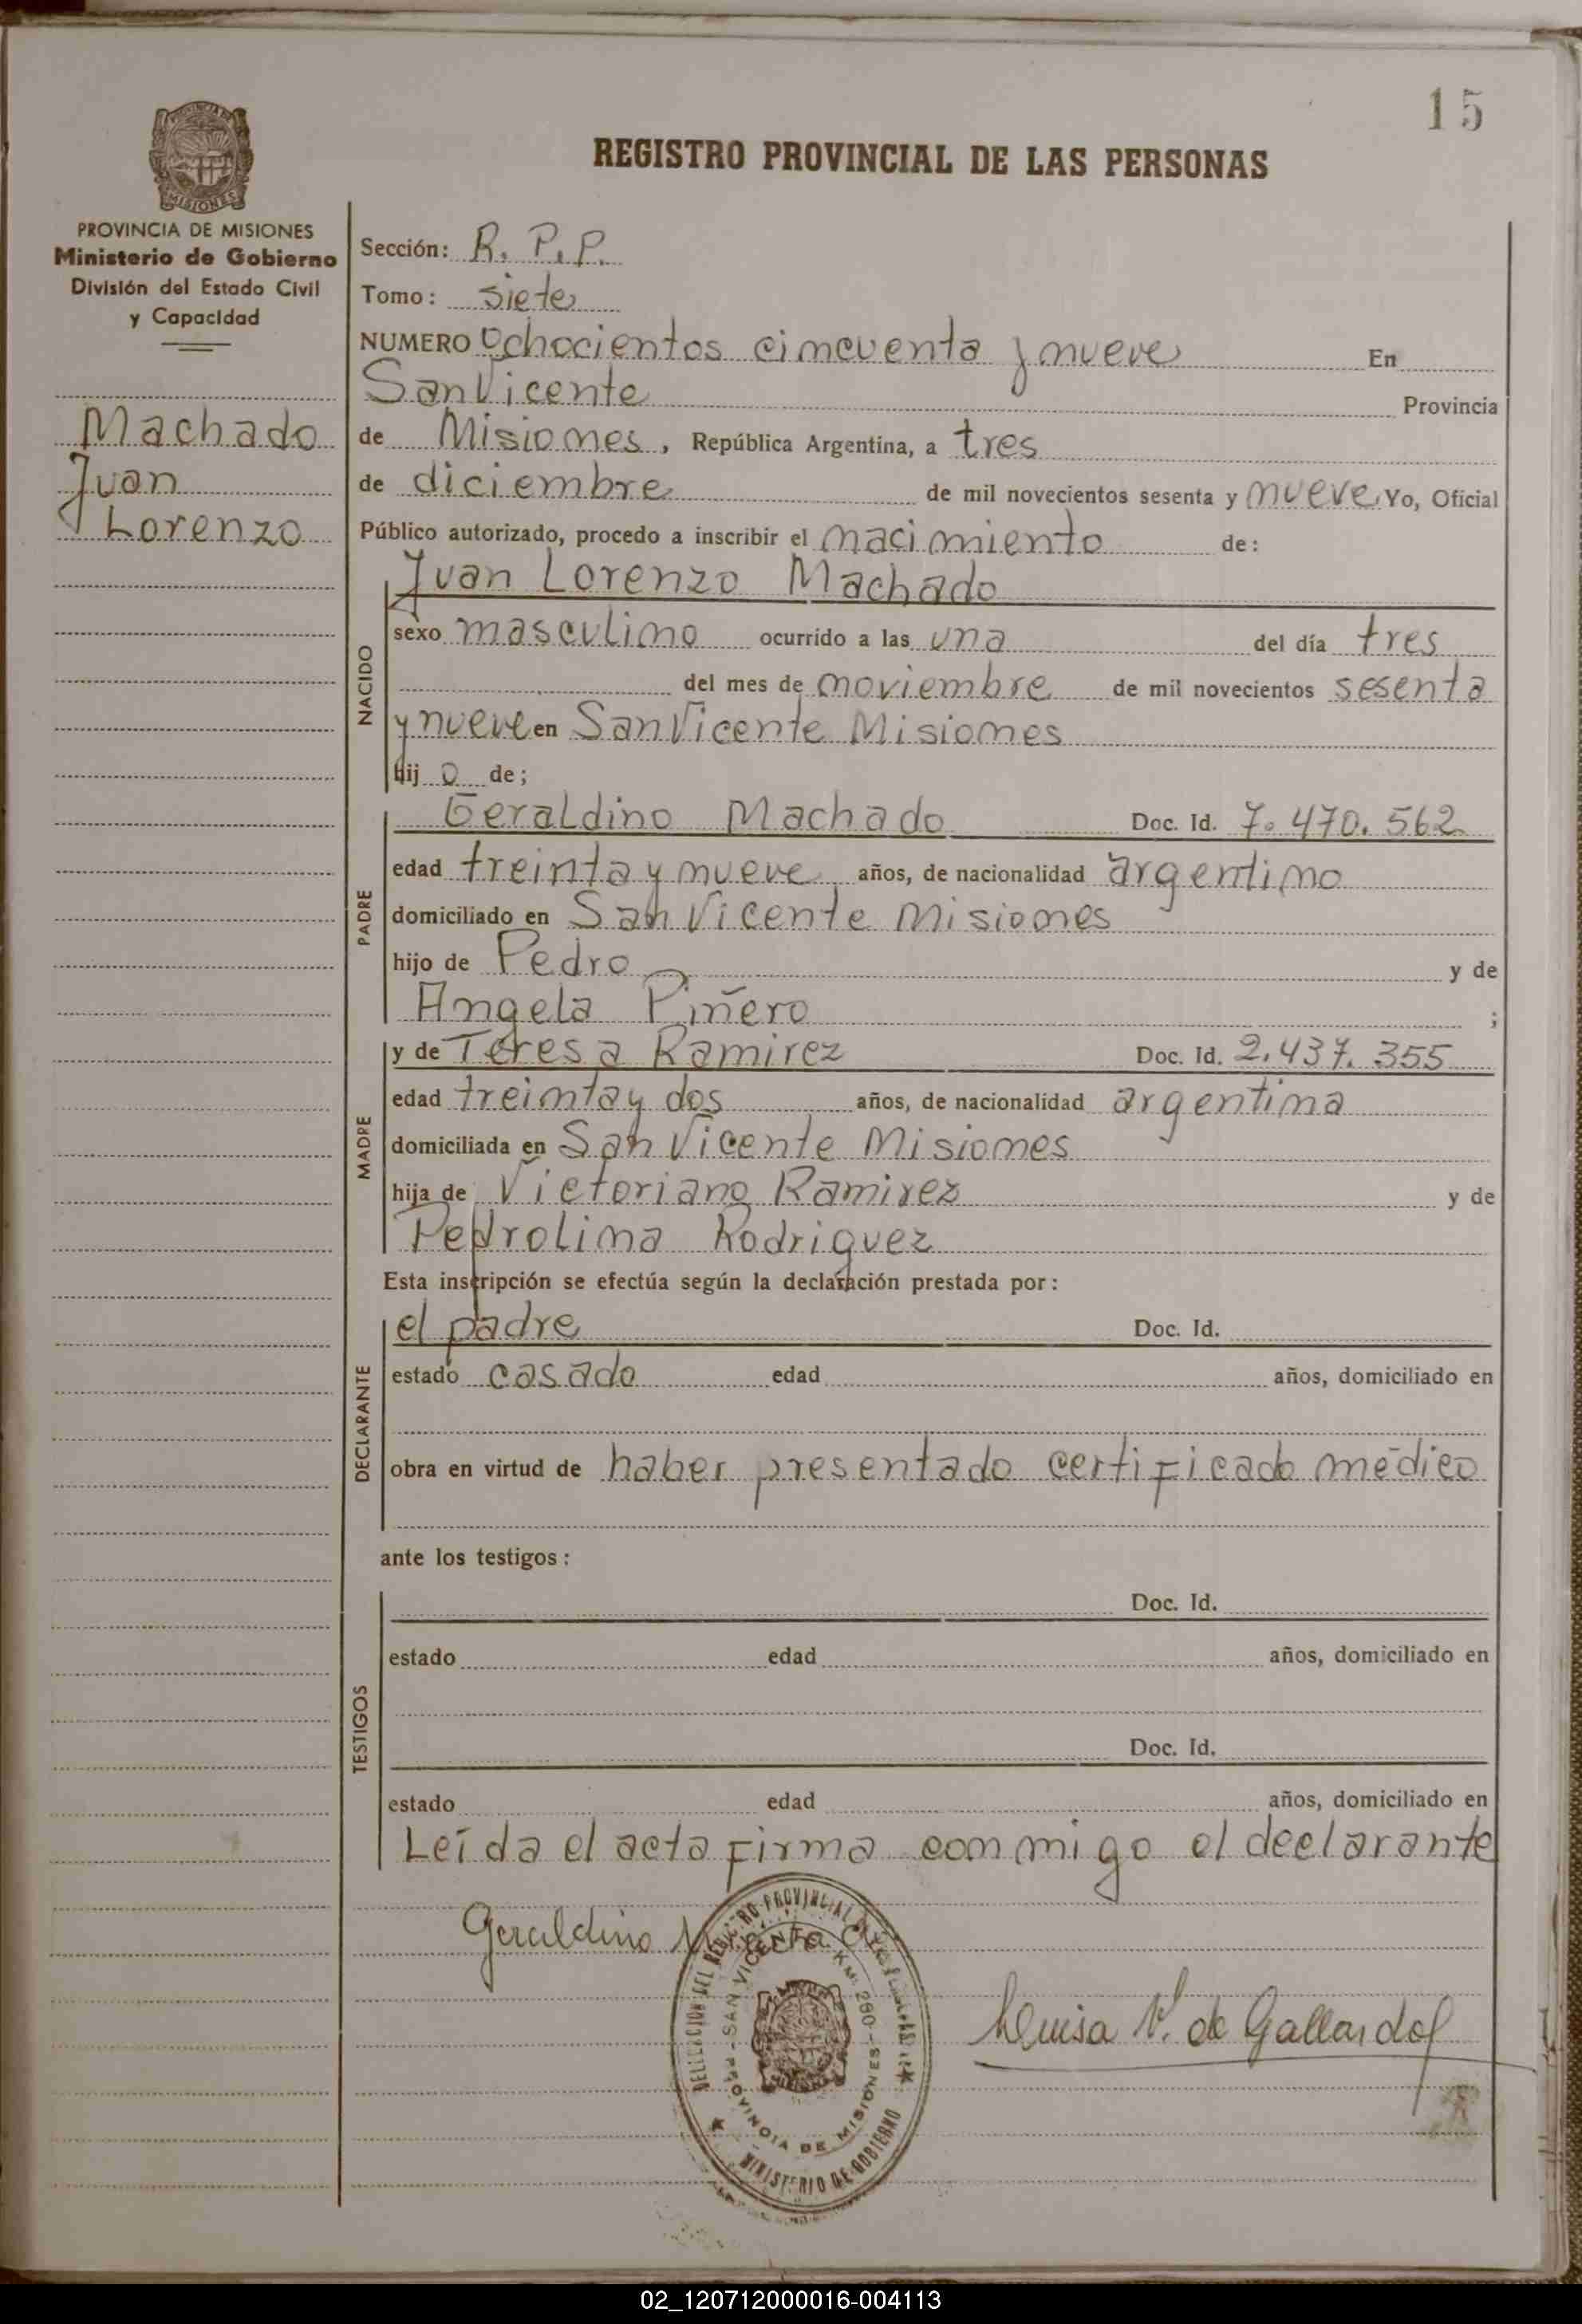 15
REGISTRO PROVINCIAL DE LAS PERSONAS
PROVINCIA DE MISIONES
Ministerio de Gobierno
División del Estado Civil
y Capacidad
Machado
Juan
Lorenzo
Sección: R. P. P.
Tomo: siete
NUMERO Ochocientos cincuenta y nueve En
San Vicente Provincia
de Misiones, República Argentina, a tres
de diciembre de mil novecientos sesenta y nueve Yo, Oficial
Público autorizado, procedo a inscribir el nacimiento de:
NACIDO
Juan Lorenzo Machado
sexo masculino ocurrido a las una del día tres
del mes de noviembre de mil novecientos sesenta
y nueve en San Vicente Misiones
hij o de;
PADRE
Geraldino Machado Doc. Id. 7.470.562
edad treinta y nueve años, de nacionalidad argentino
domiciliado en San Vicente Misiones
hijo de Pedro y de
Angela Piñero ;
MADRE
y de Teresa Ramirez Doc. Id. 2.437.355
edad treinta y dos años, de nacionalidad argentina
domiciliada en San Vicente Misiones
hija de Victoriano Ramirez y de
Pedrolina Rodriguez
Esta inscripción se efectúa según la declaración prestada por:
DECLARANTE
el padre Doc. Id.
estado casado edad años, domiciliado en
obra en virtud de haber presentado certificado médico
ante los testigos:
TESTIGOS
Doc. Id.
estado edad años, domiciliado en
Doc. Id.
estado edad años, domiciliado en
Leída el acta firma conmigo el declarante
Geraldino Machado
DELEGACION DEL REGISTRO PROVINCIAL DE LAS PERSONAS
SAN VICENTE KM. 260 - PROVINCIA DE MISIONES
MINISTERIO DE GOBIERNO
Luisa V. de Gallardo
02_120712000016-004113